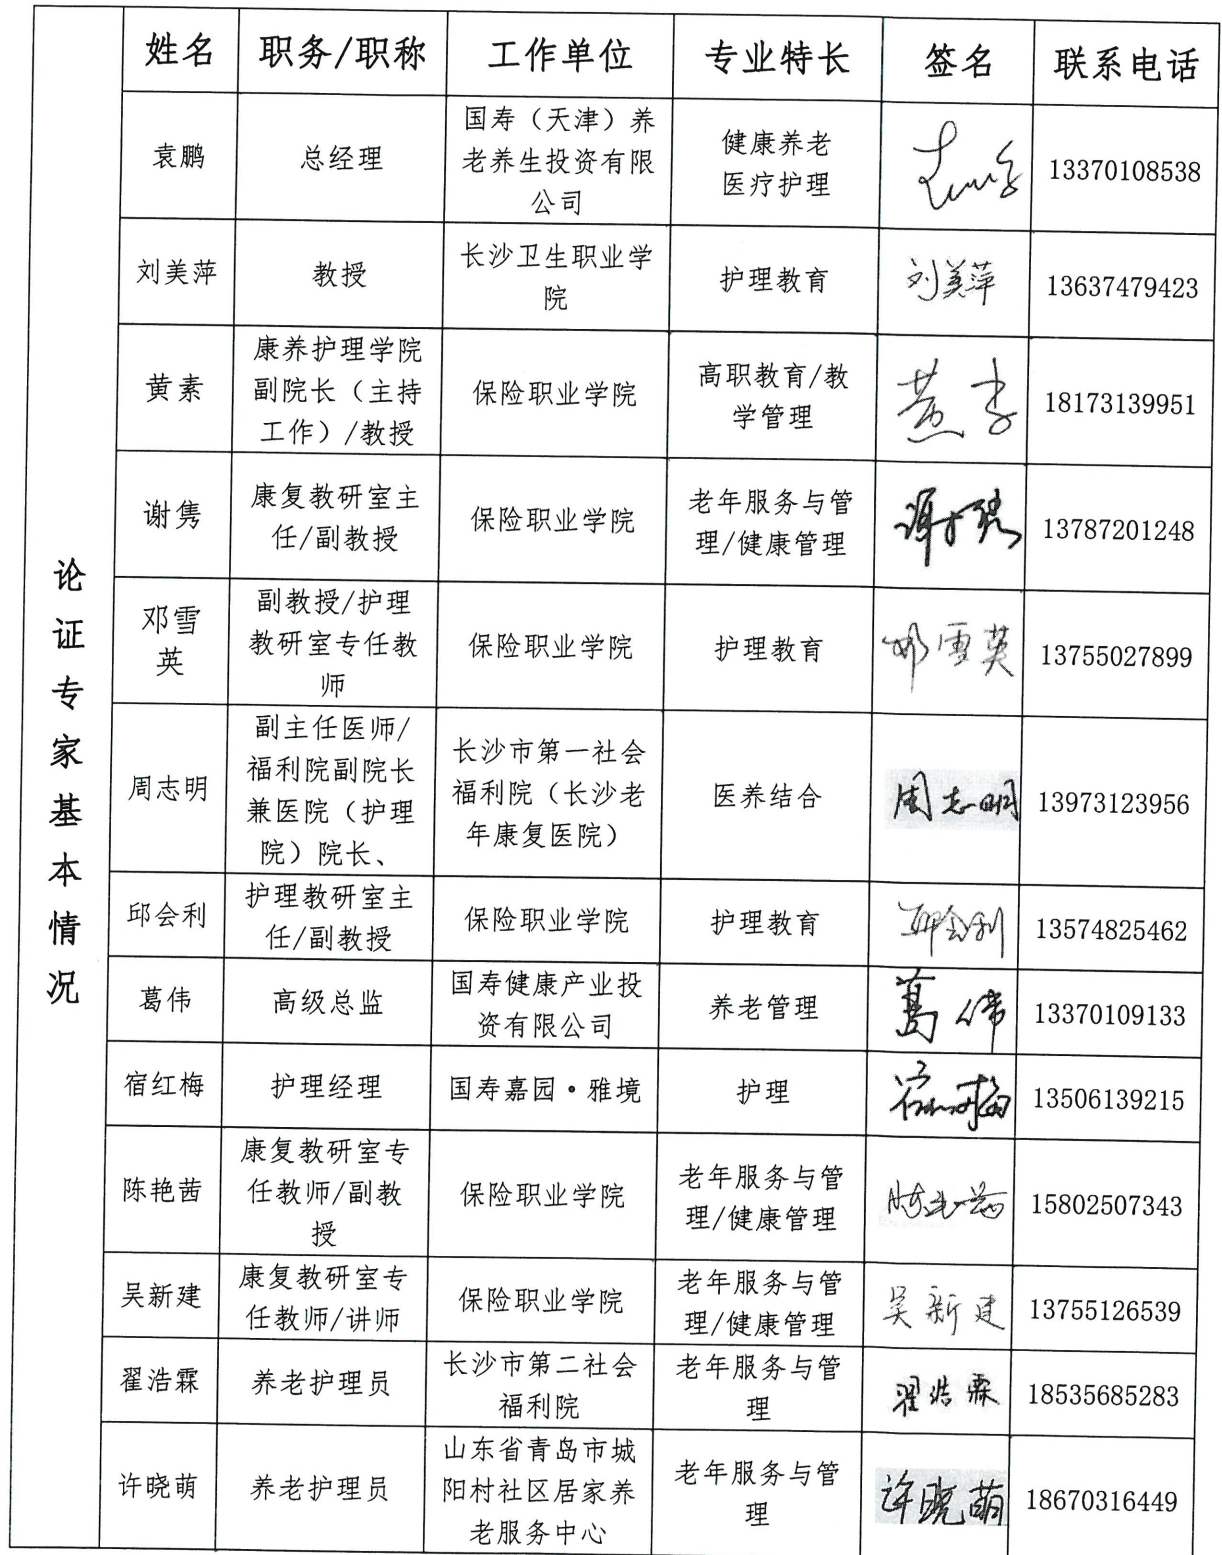 论证专家基本情况
姓名 职务/职称 工作单位 专业特长 签名 联系电话
袁鹏
总经理
国寿（天津）养
老养生投资有限
公司
健康养老
医疗护理
13370108538
刘美萍
教授
长沙卫生职业学
院
护理教育
刘美萍
13637479423
黄素
康养护理学院
副院长（主持
工作）/教授
保险职业学院
高职教育/教
学管理
黄素
18173139951
谢隽
康复教研室主
任/副教授
保险职业学院
老年服务与管
理/健康管理
谢隽
13787201248
邓雪
英
副教授/护理
教研室专任教
师
保险职业学院
护理教育
邓雪英
13755027899
周志明
副主任医师/
福利院副院长
兼医院（护理
院）院长、
长沙市第一社会
福利院（长沙老
年康复医院）
医养结合
周志明
13973123956
邱会利
护理教研室主
任/副教授
保险职业学院
护理教育
邱会利
13574825462
葛伟
高级总监
国寿健康产业投
资有限公司
养老管理
葛伟
13370109133
宿红梅
护理经理
国寿嘉园·雅境
护理
宿红梅
13506139215
陈艳茜
康复教研室专
任教师/副教
授
保险职业学院
老年服务与管
理/健康管理
陈艳茜
15802507343
吴新建
康复教研室专
任教师/讲师
保险职业学院
老年服务与管
理/健康管理
吴新建
13755126539
翟浩霖
养老护理员
长沙市第二社会
福利院
老年服务与管
理
翟浩霖
18535685283
许晓萌
养老护理员
山东省青岛市城
阳村社区居家养
老服务中心
老年服务与管
理
许晓萌
18670316449